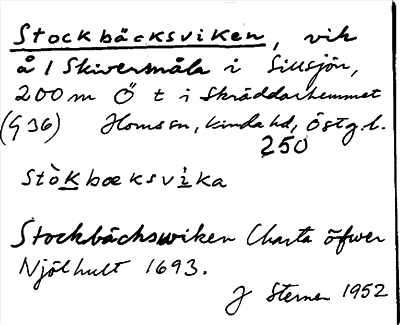 Stockbäcksviken, vik
å 1 Skiversmåla i Sillsjön,
200 m Ö t i Skräddarhemmet
(G 36) Horns sn, Kinda hd, Östg. l.
250
Stòkbæksvìka
Stockbächswiken Charta öfwer
Njölhult 1693.
J Sterner 1952